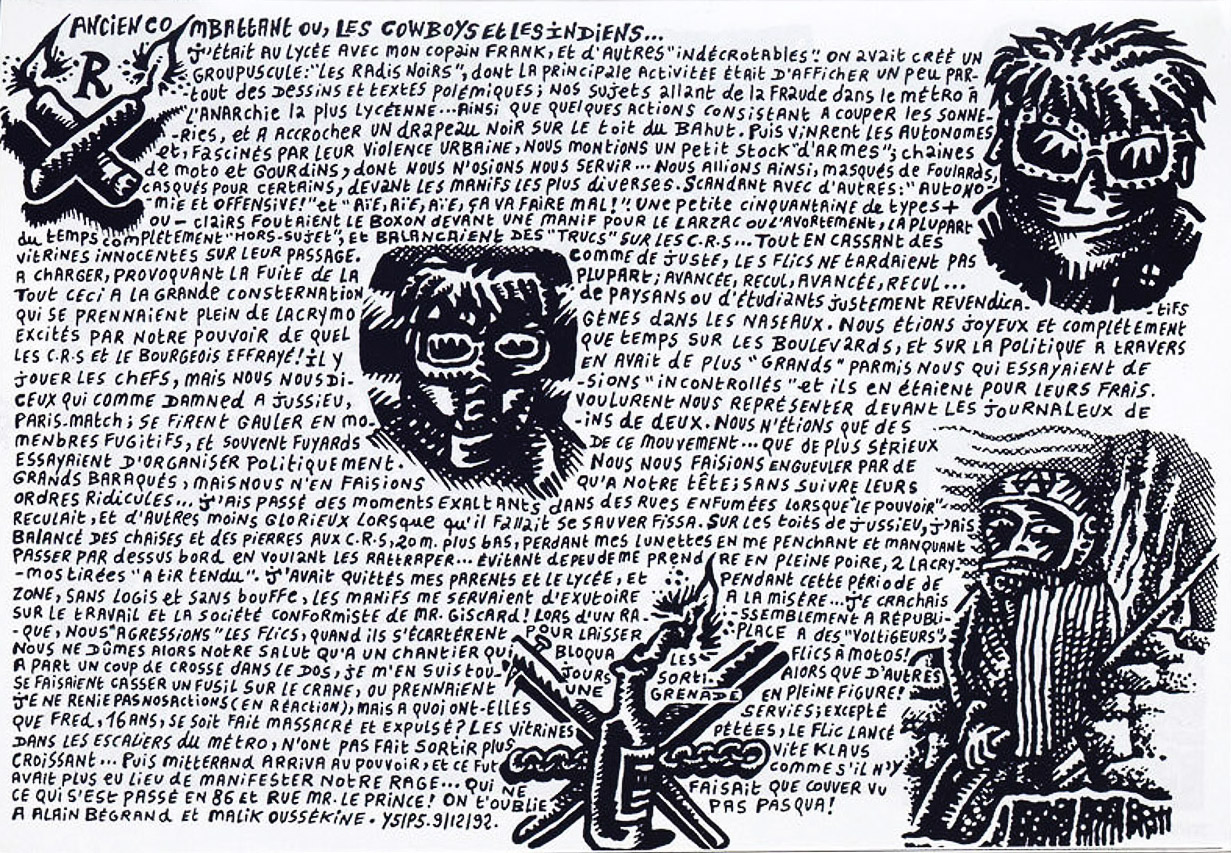 ANCIEN COMBATTANT OU, LES COWBOYS Et LES INDIENS...
R
J'ÉTAIT AU LYCÉE AVEC MON COPAIN FRANK, Et d'AUTRES "INDÉCROTABLES". ON AVAIT CRÉÉ UN
GROUPUSCULE: "LES RADIS NOIRS", dONT LA PRINCIPALE ACTIVITÉE ÉTAIT D'AFFICHER UN PEU PAR-
-tout DES DESSINS Et tEXTES POLÉMIQUES; NOS SUJETS ALLANT de la FRAUDE dANS le MÉTRO A
L'ANARCHIE la PLUS LYCÉENNE... AINSI QUE QUELQUES ACTIONS CONSISTANT A COUPER LES SONNE-
-RIES, et A ACCROCHER UN dRAPEAU NOIR SUR LE toit du BAHUT. PUIS VINRENT LES AUTONOMES
et, FASCINÉS PAR LEUR VIOLENCE URBAINE, NOUS MONTIONS UN PETIT STOCK "d'ARMES"; CHAINES
de MOTO et GOURDINS, dONT NOUS N'OSIONS NOUS SERVIR... NOUS ALLIONS AINSI, MASQUÉS DE FOULARDS,
CASQUÉS POUR CERTAINS, dEVANT LES MANIFS LES PLUS diVERSES. SCANDANT AVEC d'AUTRES: "AUTONO-
-MIE Et OFFENSIVE!" et "AïE, AïE, AïE, ÇA VA FAIRE MAL!". UNE PETITE CINQUANTAINE de TYPES +
OU - CLAIRS FOUTAIENT LE BOXON DEVANT UNE MANIF POUR LE LARZAC OU L'AVORTEMENT, LA PLUPART
du tEMPS COMPLÈTEMENT "HORS-SUJET", Et BALANCAIENT DES "TRUCS" SUR LES C.R.S... TOUT EN CASSANT DES
VITRINES INNOCENTES SUR LEUR PASSAGE. COMME de JUSTE, LES FLICS NE TARDAIENT PAS
A CHARGER, PROVOQUANT LA FUITE DE LA PLUPART; AVANCÉE, RECUL, AVANCÉE, RECUL...
TOUT CECI A LA GRANDE CONSTERNATION de PAYSANS OU d'ÉTUDIANTS JUSTEMENT REVENDICA-TIFS
QUI SE PRENNAIENT PLEIN DE LACRYMOGÈNES dANS LES NASEAUX. NOUS ÉTIONS JOYEUX ET COMPLÉTEMENT
EXCITÉS PAR NOTRE POUVOIR DE QUELQUE TEMPS SUR LES BOULEVARDS, Et SUR LA POLITIQUE A tRAVERS
LES C.R.S ET LE BOURGEOIS EFFRAYÉ! IL Y EN AVAIT DE PLUS "GRANDS" PARMIS NOUS QUI ESSAYAIENT DE
JOUER LES CHEFS, MAIS NOUS NOUS DI-SIONS "INCONTROLLÉS" et ILS EN ÉTAIENT POUR LEURS FRAIS.
CEUX QUI COMME DAMNED A JUSSIEU, VOULURENT NOUS REPRÉSENTER DEVANT LES JOURNALEUX DE
PARIS-MATCH; SE FIRENT GAULER EN MO-INS DE DEUX. NOUS N'ÉTIONS QUE DES
MENBRES FUGITIFS, ET SOUVENT FUYARDS DE CE MOUVEMENT... QUE DE PLUS SÉRIEUX
ESSAYAIENT D'ORGANISER POLITIQUEMENT. NOUS NOUS FAISIONS ENGUEULER PAR DE
GRANDS BARAQUÉS, MAIS NOUS N'EN FAISIONS QU'A NOTRE TÊTE; SANS SUIVRE LEURS
ORDRES RIDICULES... J'AIS PASSÉ DES MOMENTS EXALTANTS dANS DES RUES ENFUMÉES LORSQUE "LE POUVOIR"
RECULAIT, Et D'AUTRES MOINS GLORIEUX LORSQUE qu'il FALLAIT SE SAUVER FISSA. SUR LES TOITS DE JUSSIEU, J'AIS
BALANCÉ DES CHAISES ET DES PIERRES AUX C.R.S, 20 m. PLUS BAS, PERDANT MES LUNETTES EN ME PENCHANT ET MANQUANT
PASSER PAR DESSUS BORD EN VOULANT LES RATTRAPER... ÉVITANT DE PEU DE ME PRENDRE EN PLEINE POIRE, 2 LACRY-
-MOS TIRÉES "A TIR TENDU". J'AVAIT QUITTÉS MES PARENTS ET LE LYCÉE, ET PENDANT CETTE PÉRIODE DE
ZONE, SANS LOGIS et SANS bOUFFE, LES MANIFS ME SERVAIENT D'EXUTOIRE A LA MISÈRE... JE CRACHAIS
SUR LE TRAVAIL ET LA SOCIÉTÉ CONFORMISTE DE MR. GISCARD! LORS D'UN RA-SSEMBLEMENT A RÉPUBLI-
-QUE, NOUS "AGRESSIONS" LES FLICS, QUAND ILS S'ÉCARTÈRENT POUR LAISSER PLACE A DES "VOLTIGEURS",
NOUS NE DÛMES ALORS NOTRE SALUT QU'A UN CHANTIER QUI BLOQUA LES FLICS A MOTOS!
A PART UN COUP DE CROSSE DANS LE DOS, JE M'EN SUIS TOU-JOURS SORTI- ALORS QUE D'AUTRES
SE FAISAIENT CASSER UN FUSIL SUR LE CRANE, OU PRENNAIENT UNE GRENADE EN PLEINE FIGURE!
JE NE RENIE PAS NOS ACTIONS (EN RÉACTION), MAIS A QUOI ONT-ELLES SERVIES; EXCEPTÉ
QUE FRED, 16 ANS, SE SOIT FAIT MASSACRÉ ET EXPULSÉ? LES VITRINES PÉTÉES, LE FLIC LANCÉ
DANS LES ESCALIERS du MÉTRO, N'ONT PAS FAIT SORTIR PLUS VITE KLAUS
CROISSANT... PUIS MITTERAND ARRIVA AU POUVOIR, ET CE FUT COMME S'IL N'Y
AVAIT PLUS EU LIEU DE MANIFESTER NOTRE RAGE... QUI NE FAISAIT QUE COUVER VU
CE QUI S'EST PASSÉ EN 86 Et RUE MR. LE PRINCE! ON T'OUBLIE PAS PASQUA!
A ALAIN BÉGRAND ET MALIK OUSSÉKINE. Y5/P5. 9/12/92.